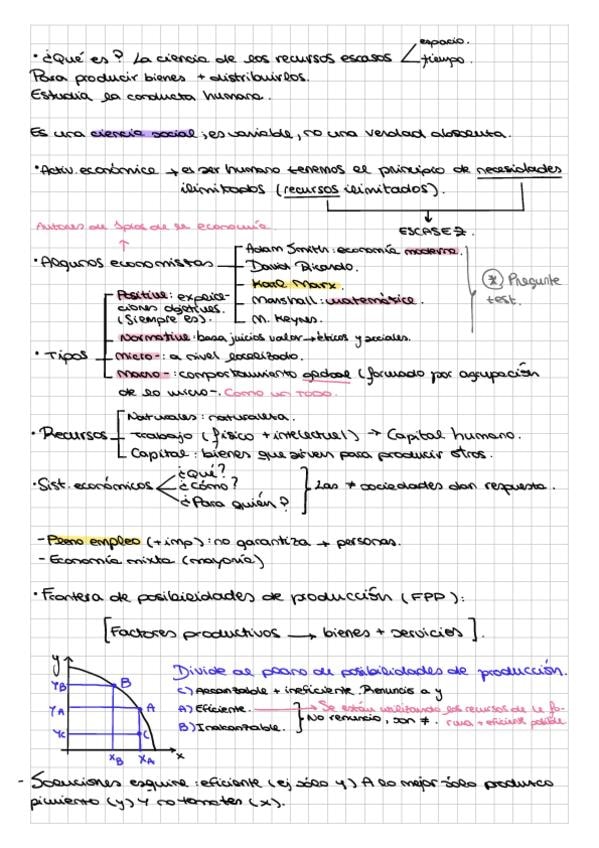 · ¿Qué es? La ciencia de los recursos escasos espacio.
tiempo.
Para producir bienes + distribuirlos.
Estudia la conducta humana.
Es una ciencia social, es variable, no una verdad absoluta.
· Activ. económica → el ser humano tenemos el principio de necesidades
ilimitadas (recursos ilimitados).
ESCASEZ.
Autores de tipos de la economía
· Algunos economistas
Adam Smith: economía moderna.
David Ricardo.
Karl Marx.
Marshall: matemática.
M. Keynes.
* Pregunta
test.
· Tipos
Positiva: explica-
ciones objetivas.
(Siempre es).
Normativa: basa juicios valor → éticos y sociales.
Micro-: a nivel localizado.
Macro-: comportamiento global (formado por agrupación
de lo micro-. Como un TODO.
· Recursos
Naturales: naturaleza.
Trabajo (físico + intelectual) → Capital humano.
Capital: bienes que sirven para producir otros.
· Sist. económicos
¿Qué?
¿Cómo?
¿Para quién?
Las ≠ sociedades dan respuesta.
- Pleno empleo (+ imp): no garantiza → personas.
- Economía mixta (mayoría)
· Frontera de posibilidades de producción (FPP):
[Factores productivos → bienes + servicios].
Divide al plano de posibilidades de producción.
C) Alcanzable + ineficiente. Renuncia a y
A) Eficiente. → Se están utilizando los recursos de la fo-
rma + eficiente posible
B) Inalcanzable.
No renuncio, son ≠.
y
YB
YA
YC
B
A
C
XB XA x
- Soluciones esquina: eficiente (ej sólo y) A lo mejor sólo produzco
pimiento (y) y no tomates (x).